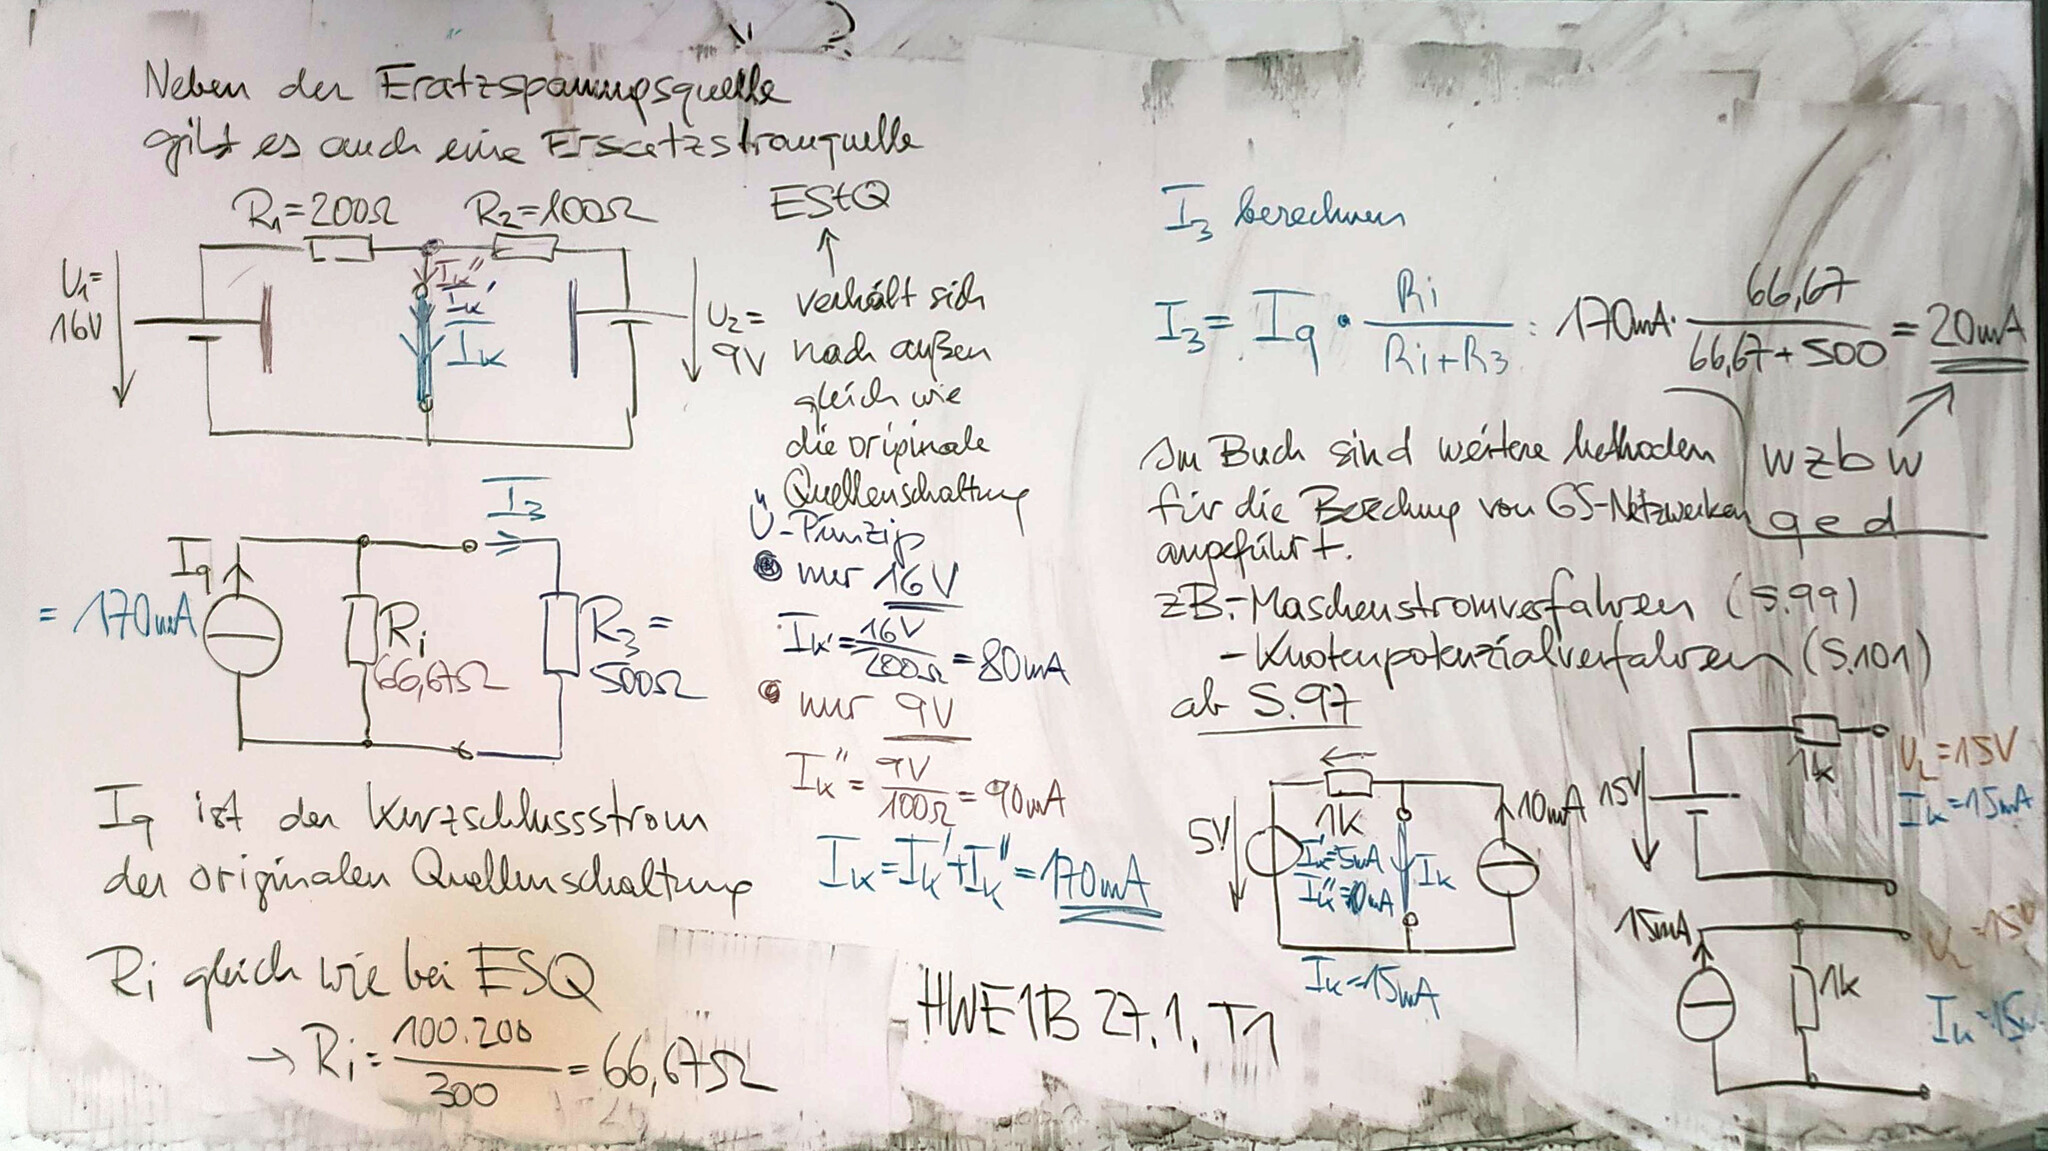 Neben der Eratzspannungsquelle
gibt es auch eine Ersatzstromquelle
R₁=200Ω
R₂=100Ω
EStQ
U₁=
16V
Iₖ''
Iₖ'
Iₖ
U₂=
9V
verhält sich
nach außen
gleich wie
die originale
Quellenschaltung
I₃
Iq
= 170mA
Ri
66,67Ω
R₃=
500Ω
Ü-Prinzip
nur 16V
Iₖ'=16V/200Ω=80mA
nur 9V
Iₖ''=9V/100Ω=90mA
Iₖ=Iₖ'+Iₖ''=170mA
Iq ist der Kurzschlussstrom
der originalen Quellenschaltung
Ri gleich wie bei ESQ
→ Ri=100.200/300=66,67Ω
HWE1B 27.1. T1
I₃ berechnen
I₃= Iq · Ri/(Ri+R₃) = 170mA· 66,67/(66,67+500) = 20mA
wzbw
qed
Im Buch sind weitere Methoden
für die Berechung von GS-Netzwerken
angeführt.
zB:-Maschenstromverfahren (S.99)
-Knotenpotenzialverfahren (S.101)
ab S.97
1k
5V
10mA
Iₖ'=5mA
Iₖ''=10mA
Iₖ
Iₖ=15mA
15V
1k
U_L=15V
Iₖ=15mA
15mA
1k